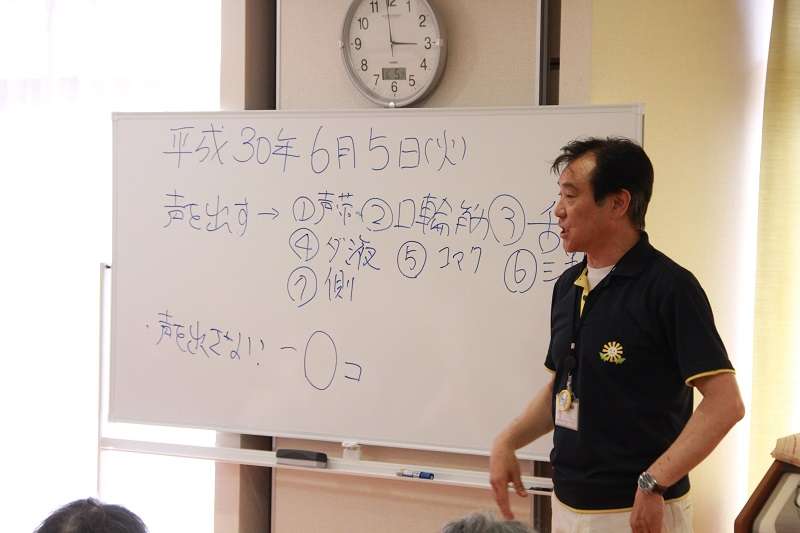 12
1
2
3
4
5
6
7
8
9
10
11
平成30年6月5日(火)
声を出す → ①声帯 ②口輪筋 ③舌
④ダ液 ⑤コマク ⑥三
⑦側
・声を出さない! ー〇コ